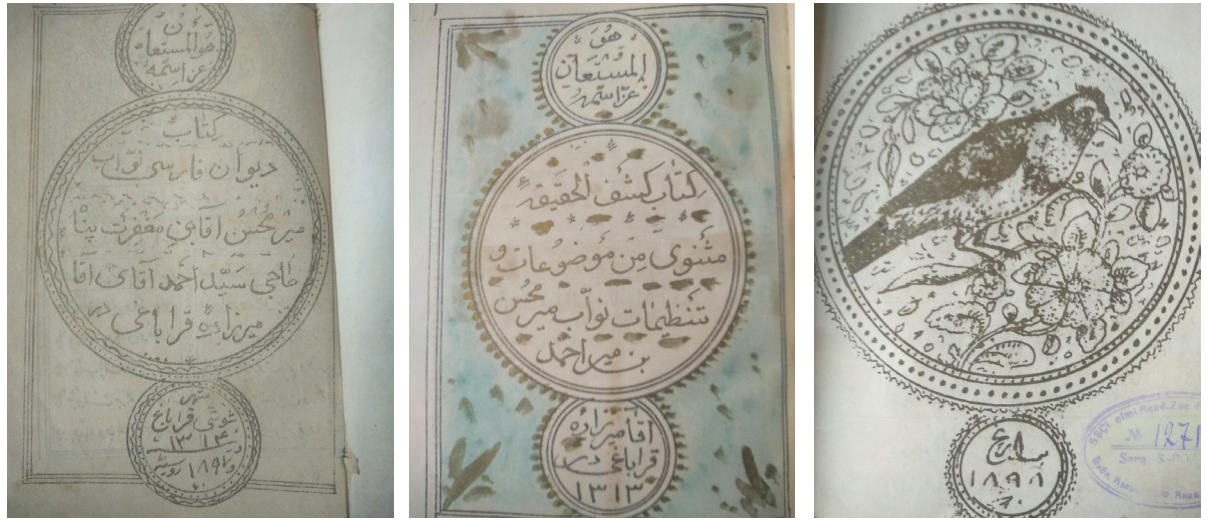 هو المستعان
عز اسمه
کتاب
دیوان فارسی نوّاب
میر محسن آقا بن مغفرت پناه
حاجی سیّد احمد آقای آقا
میرزاده قراباغی در
شهر
شوشی قراباغ
۱۳۱۴
و ۱۸۹۶ روسی
هو
المستعان
عزّ اسمه
کتاب کشف الحقیقهٔ
مثنوی مِن موضوعات و
تنظیمات نوّاب میر محسن
بن میر احمد
آقا میرزاده
قراباغی در
۱۳۱۳
۱۸۹۸
№ 1271